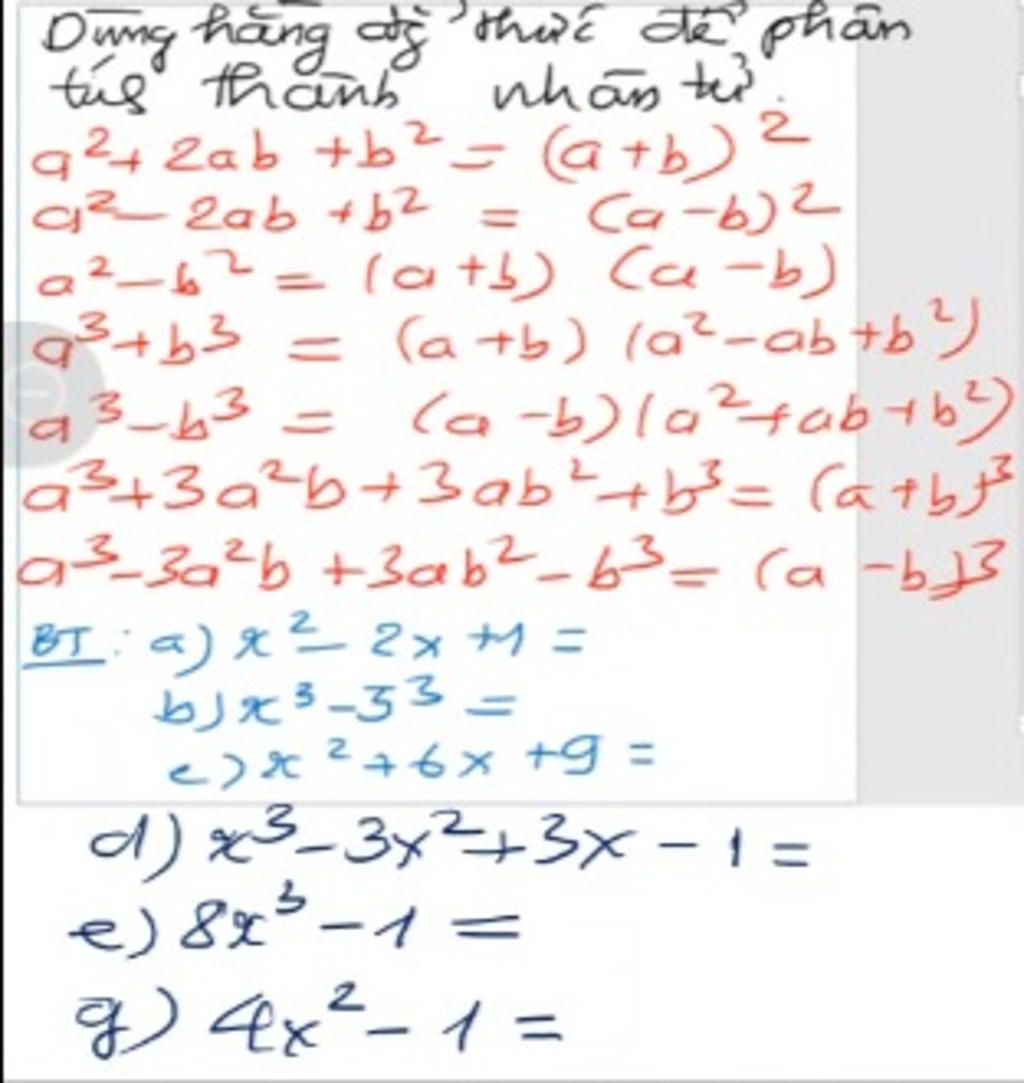 Dùng hằng đg̃ thức để phân
túc thành nhân tử.
a² + 2ab + b² = (a + b)²
a² - 2ab + b² = (a - b)²
a² - b² = (a + b) (a - b)
a³ + b³ = (a + b) (a² - ab + b²)
a³ - b³ = (a - b) (a² + ab + b²)
a³ + 3a²b + 3ab² + b³ = (a + b)³
a³ - 3a²b + 3ab² - b³ = (a - b)³
BT: a) x² - 2x + 1 =
b) x³ - 3³ =
c) x² + 6x + 9 =
d) x³ - 3x² + 3x - 1 =
e) 8x³ - 1 =
g) 4x² - 1 =